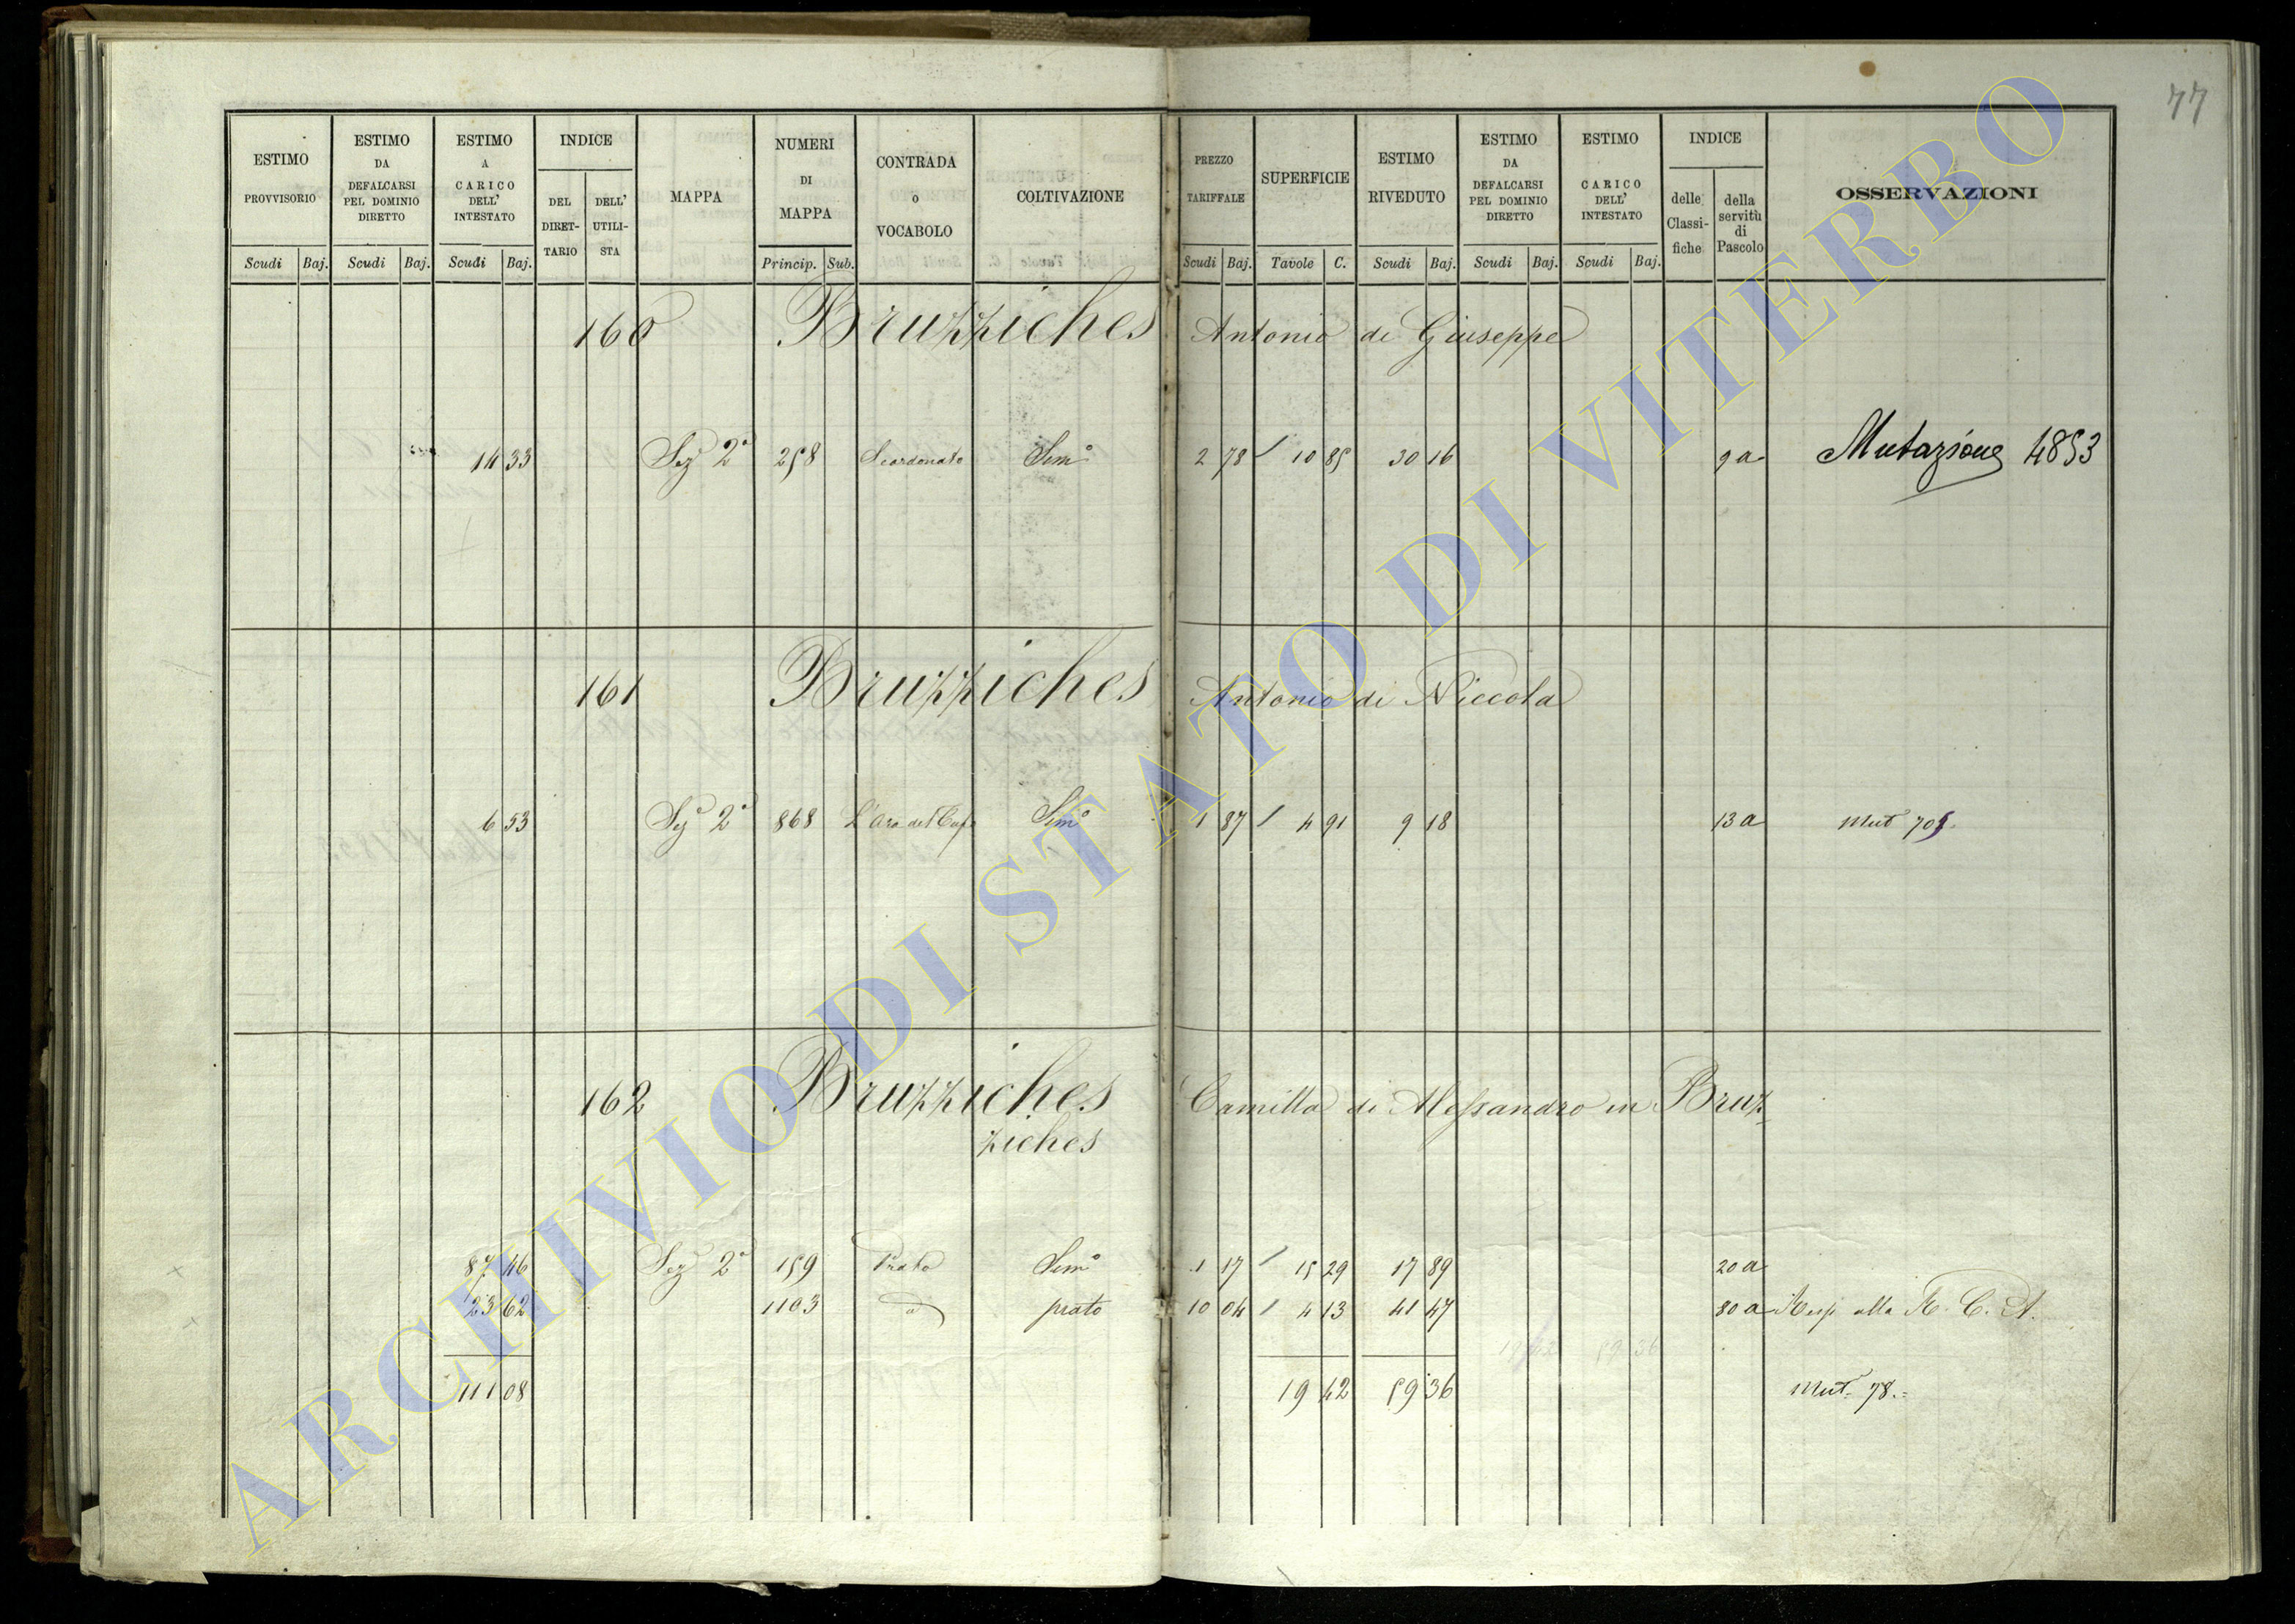 77
ESTIMO PROVVISORIO
ESTIMO DA DEFALCARSI PEL DOMINIO DIRETTO
ESTIMO A CARICO DELL' INTESTATO
INDICE
DEL DIRET-TARIO
DELL' UTILI-STA
MAPPA
NUMERI DI MAPPA
CONTRADA o VOCABOLO
COLTIVAZIONE
PREZZO TARIFFALE
SUPERFICIE
ESTIMO RIVEDUTO
ESTIMO DA DEFALCARSI PEL DOMINIO DIRETTO
ESTIMO A CARICO DELL' INTESTATO
INDICE
delle Classi-fiche
della servitù di Pascolo
OSSERVAZIONI
Scudi Baj. Scudi Baj. Scudi Baj. Princip. Sub. Scudi Baj. Tavole C. Scudi Baj. Scudi Baj. Scudi Baj.
160 Bruzziches Antonio di Giuseppe
14 33 Sez 2ª 258 Scardonato Semº 2 78 10 85 30 16 9 a Mutazione 4853
161 Bruzziches Antonio di Niccola
6 53 Sez 2ª 868 Semº 1 87 4 91 9 18 13 a Mut 705
162 Bruzziches Camilla di Alessandro in Bruz
ziches
87 46 Sez 2ª 159 Prato Semº 1 17 15 29 17 89 20 a
23 62 1103 prato 10 04 4 13 41 47 80 a alla R. C. A.
111 08 19 42 59 36 Mut. 78.=
ARCHIVIO DI STATO DI VITERBO